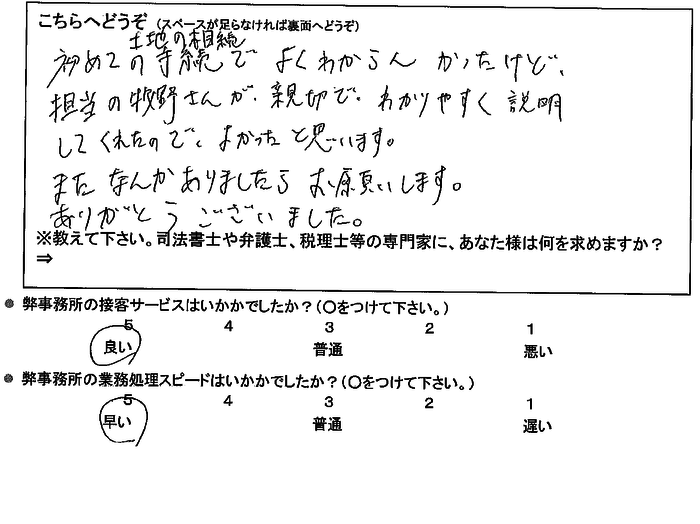 こちらへどうぞ (スペースが足らなければ裏面へどうぞ)
土地の相続
初めての手続でよくわからんかったけど、
担当の牧野さんが、親切で、わかりやすく説明
してくれたので、よかったと思います。
またなんかありましたらお願いします。
ありがとうございました。
※教えて下さい。司法書士や弁護士、税理士等の専門家に、あなた様は何を求めますか？
⇒
● 弊事務所の接客サービスはいかかでしたか？(〇をつけて下さい。)
5 4 3 2 1
良い 普通 悪い
● 弊事務所の業務処理スピードはいかかでしたか？(〇をつけて下さい。)
5 4 3 2 1
早い 普通 遅い